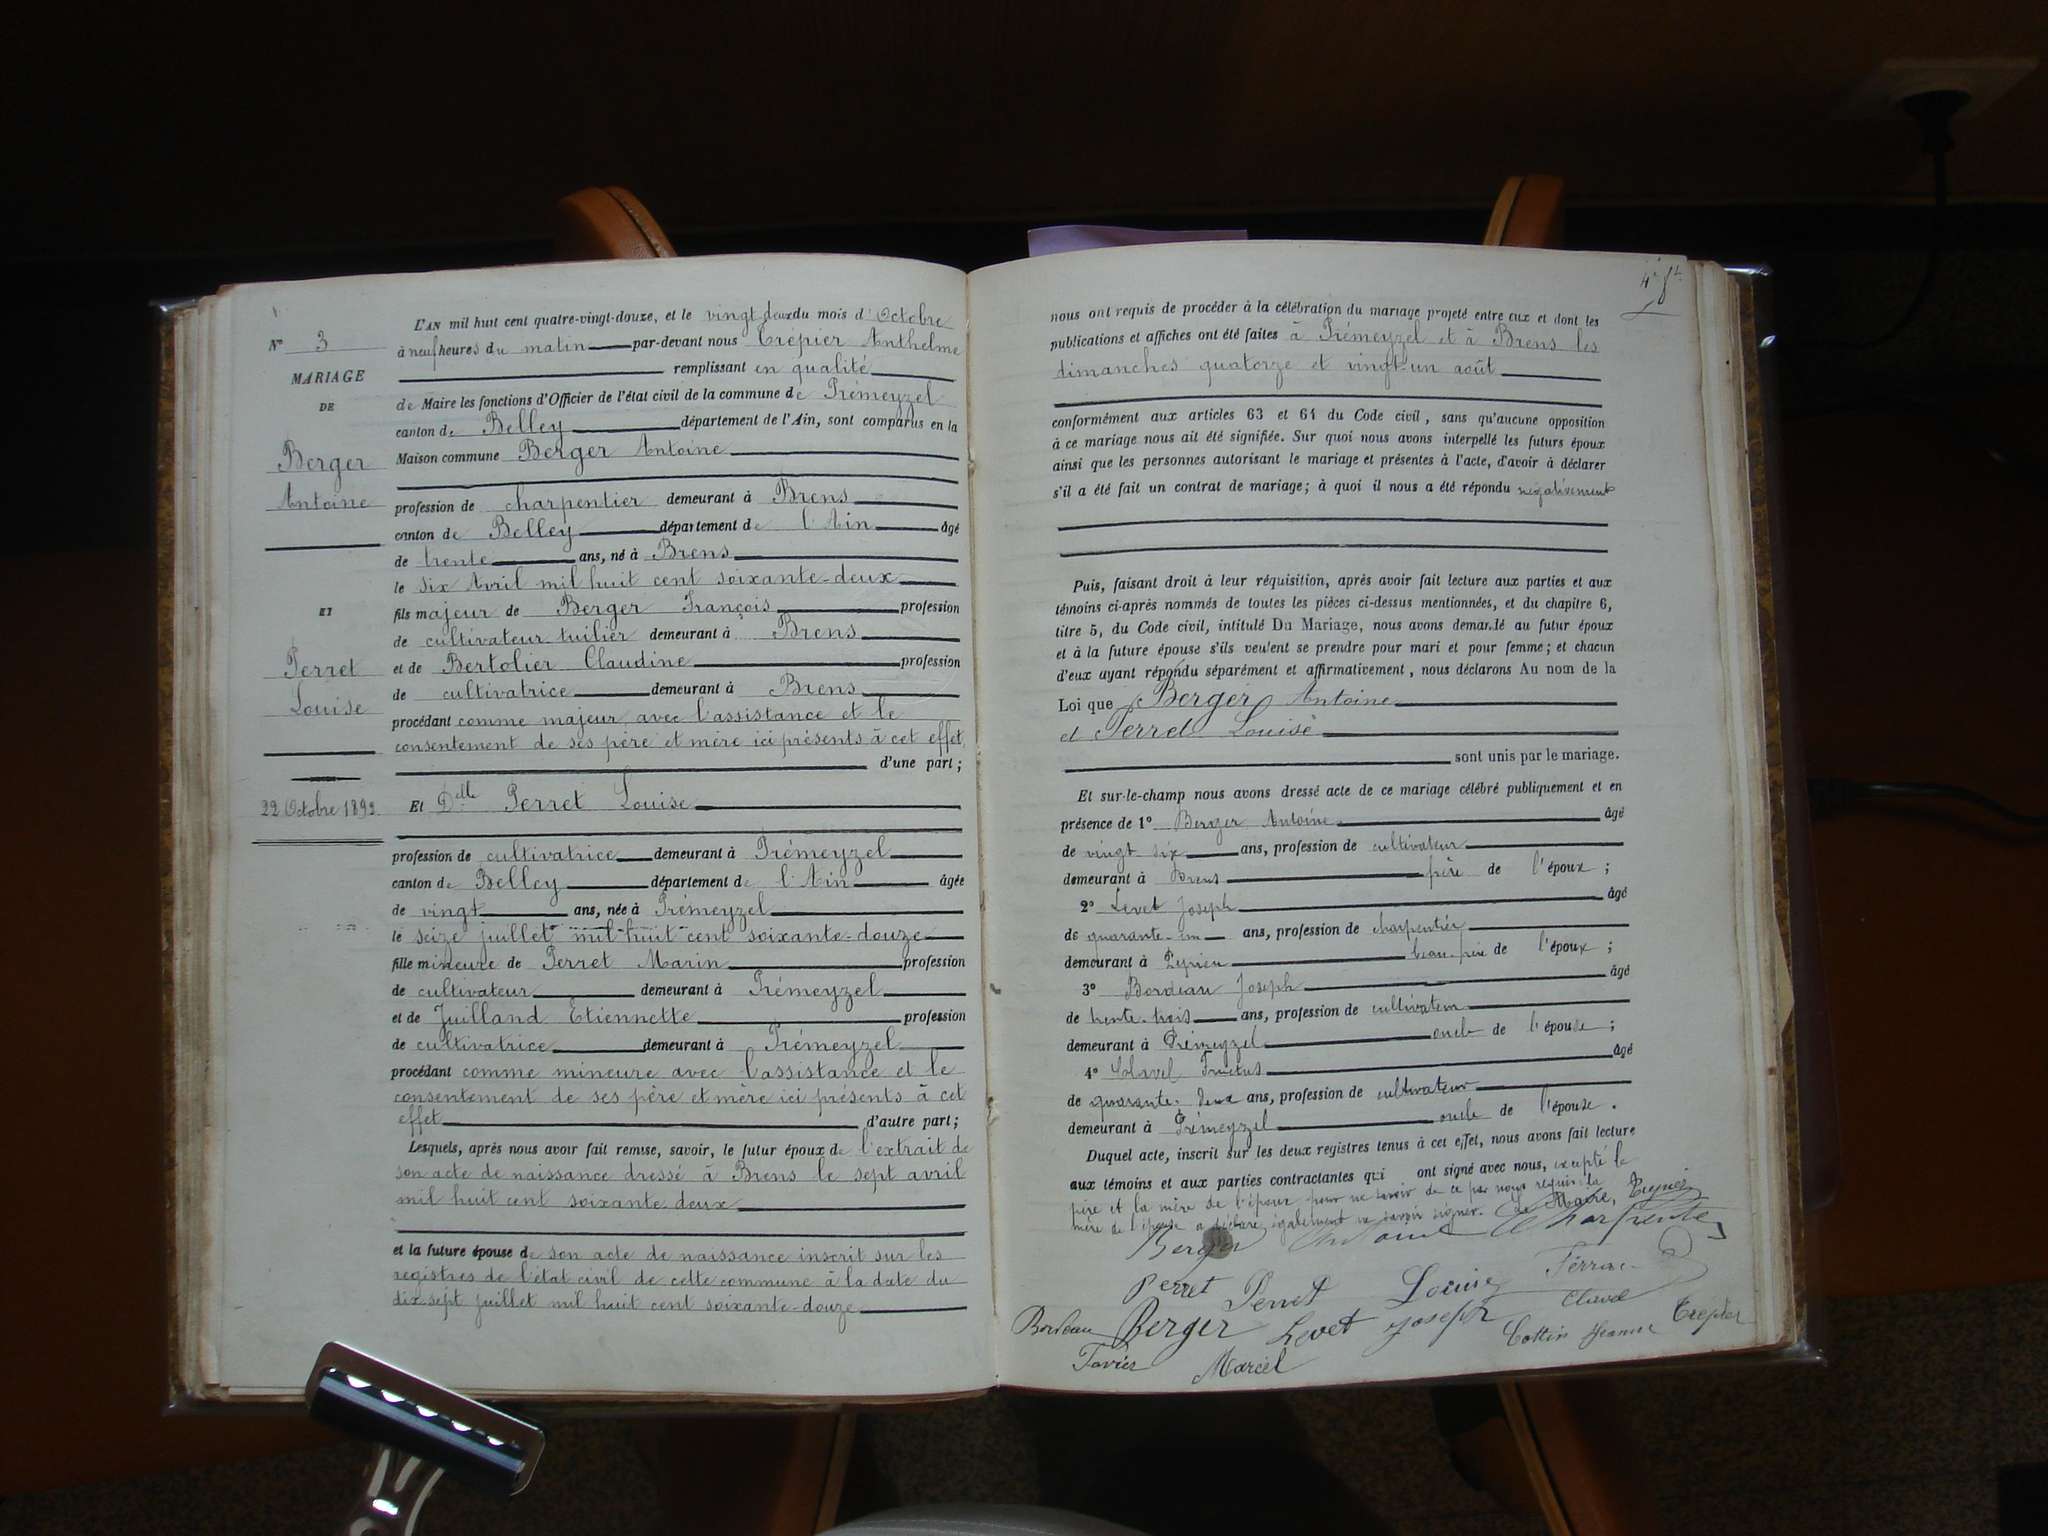 N° 3
MARIAGE
DE
Berger
Antoine
ET
Perret
Louise
22 Octobre 1892
L'AN mil huit cent quatre-vingt-douze, et le vingt deux du mois d'Octobre
à neuf heures du matin par-devant nous Trépier Anthelme
remplissant en qualité
de Maire les fonctions d'Officier de l'état civil de la commune de Prémeyzel
canton de Belley département de l'Ain, sont comparus en la
Maison commune Berger Antoine
profession de charpentier demeurant à Brens
canton de Belley département de l'Ain âgé
de trente ans, né à Brens
le six Avril mil huit cent soixante-deux
fils majeur de Berger François profession
de cultivateur tuilier demeurant à Brens
et de Bertolier Claudine profession
de cultivatrice demeurant à Brens
procédant comme majeur avec l'assistance et le
consentement de ses père et mère ici présents à cet effet
d'une part ;
Et Delle Perret Louise
profession de cultivatrice demeurant à Prémeyzel
canton de Belley département de l'Ain âgée
de vingt ans, née à Prémeyzel
le seize juillet mil huit cent soixante-douze
fille mineure de Perret Marin profession
de cultivateur demeurant à Prémeyzel
et de Juilland Etiennette profession
de cultivatrice demeurant à Prémeyzel
procédant comme mineure avec l'assistance et le
consentement de ses père et mère ici présents à cet
effet d'autre part ;
Lesquels, après nous avoir fait remise, savoir, le futur époux de l'extrait de
son acte de naissance dressé à Brens le sept avril
mil huit cent soixante deux
et la future épouse de son acte de naissance inscrit sur les
registres de l'état civil de cette commune à la date du
dix-sept juillet mil huit cent soixante-douze
nous ont requis de procéder à la célébration du mariage projeté entre eux et dont les
publications et affiches ont été faites à Prémeyzel et à Brens les
dimanches quatorze et vingt-un août
conformément aux articles 63 et 64 du Code civil, sans qu'aucune opposition
à ce mariage nous ait été signifiée. Sur quoi nous avons interpellé les futurs époux
ainsi que les personnes autorisant le mariage et présentes à l'acte, d'avoir à déclarer
s'il a été fait un contrat de mariage ; à quoi il nous a été répondu négativement
Puis, faisant droit à leur réquisition, après avoir fait lecture aux parties et aux
témoins ci-après nommés de toutes les pièces ci-dessus mentionnées, et du chapitre 6,
titre 5, du Code civil, intitulé Du Mariage, nous avons demandé au futur époux
et à la future épouse s'ils veulent se prendre pour mari et pour femme ; et chacun
d'eux ayant répondu séparément et affirmativement, nous déclarons Au nom de la
Loi que Berger Antoine
et Perret Louise
sont unis par le mariage.
Et sur-le-champ nous avons dressé acte de ce mariage célébré publiquement et en
présence de 1° Berger Antoine âgé
de vingt six ans, profession de cultivateur
demeurant à Brens de l'époux ;
2° Levet Joseph âgé
de quarante-un ans, profession de charpentier
demeurant à Peyrieu beau-frère de l'époux ;
3° Bordeau Joseph âgé
de trente-trois ans, profession de cultivateur
demeurant à Prémeyzel oncle de l'épouse ;
4° Clavel Fructus âgé
de quarante-deux ans, profession de cultivateur
demeurant à Prémeyzel oncle de l'épouse.
Duquel acte, inscrit sur les deux registres tenus à cet effet, nous avons fait lecture
aux témoins et aux parties contractantes qui ont signé avec nous, excepté le
père et la mère de l'époux pour ne savoir de ce par nous requis la
mère de l'épouse a déclaré également ne savoir signer. Le Maire, Trépier
Berger Antoine Charpentier
Perret Perret Louise
Bordeau Berger Levet Joseph Clavel
Cottin Jeanne Trepier
Marcel